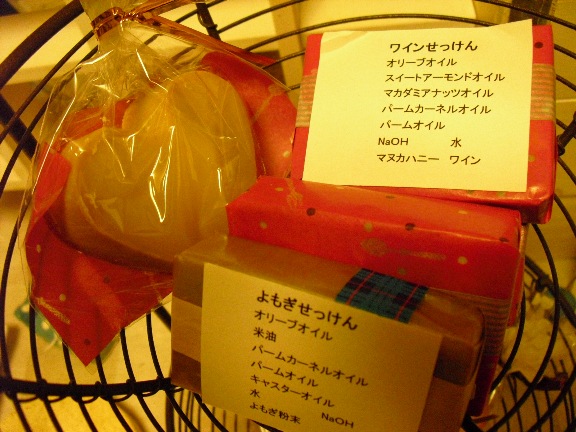 ワインせっけん
オリーブオイル
スイートアーモンドオイル
マカダミアナッツオイル
パームカーネルオイル
パームオイル
NaOH 水
マヌカハニー ワイン
よもぎせっけん
オリーブオイル
米油
パームカーネルオイル
パームオイル
キャスターオイル
水 NaOH
よもぎ粉末